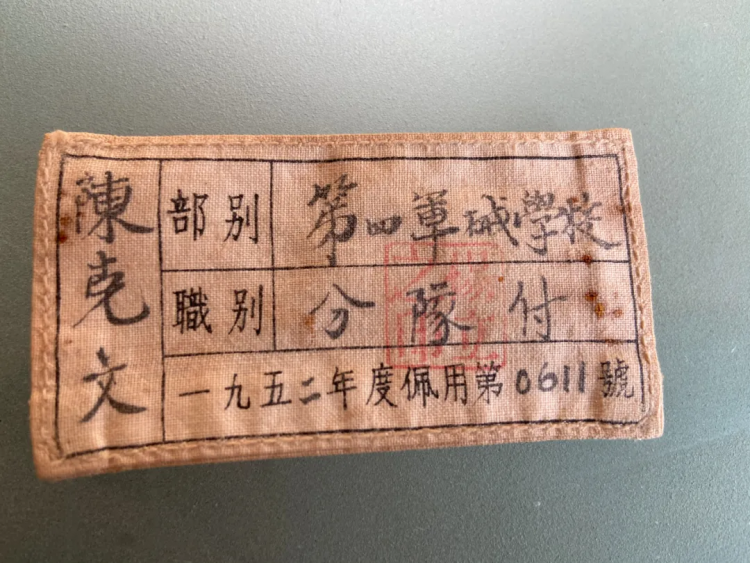 陳克文
部别 第四軍械學校
職别 分隊付
一九五二年度佩用第0611號